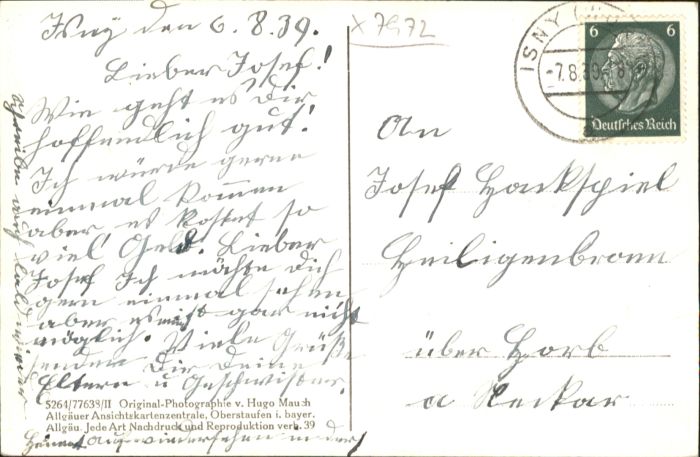 Isny den 6.8.39.
x 7972
Lieber Josef!
Wie geht es Dir
hoffendlich gut!
Ich würde gerne
einmal kommen
aber es kostet so
viel Geld. Lieber
Josef Ich möchte Dich
gern einmal sehen
aber es ist gar nicht
möglich. Viele Grüße
senden Dir Deine
Eltern u Geschwister.
Schreibe auch bald wieder
S264/77638/II Original-Photographie v. Hugo Mauch
Allgäuer Ansichtskartenzentrale, Oberstaufen i. bayer.
Allgäu. Jede Art Nachdruck und Reproduktion verb. 39
auf wiedersehen in der
Heimat
ISNY
-7.8.39
6 6
Deutsches Reich
An
Josef Hackspiel
Heiligenbronn
über Horb
a Neckar